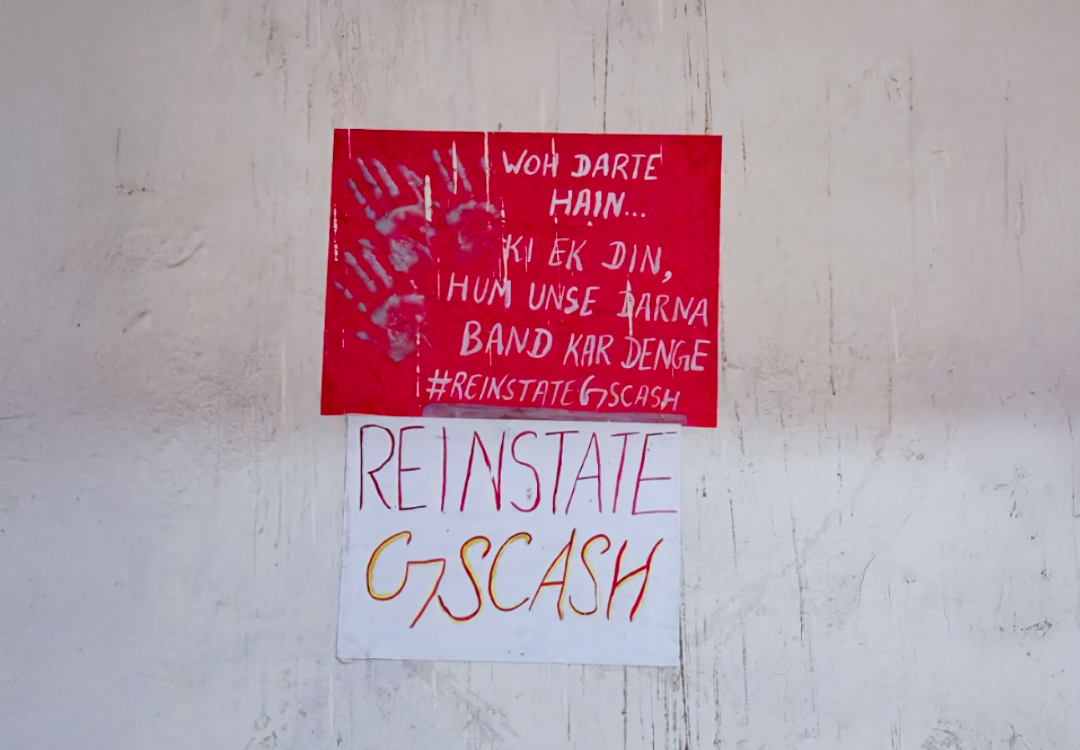 WOH DARTE
HAIN...
KI EK DIN,
HUM UNSE DARNA
BAND KAR DENGE
#REINSTATEGSCASH
REINSTATE
GSCASH